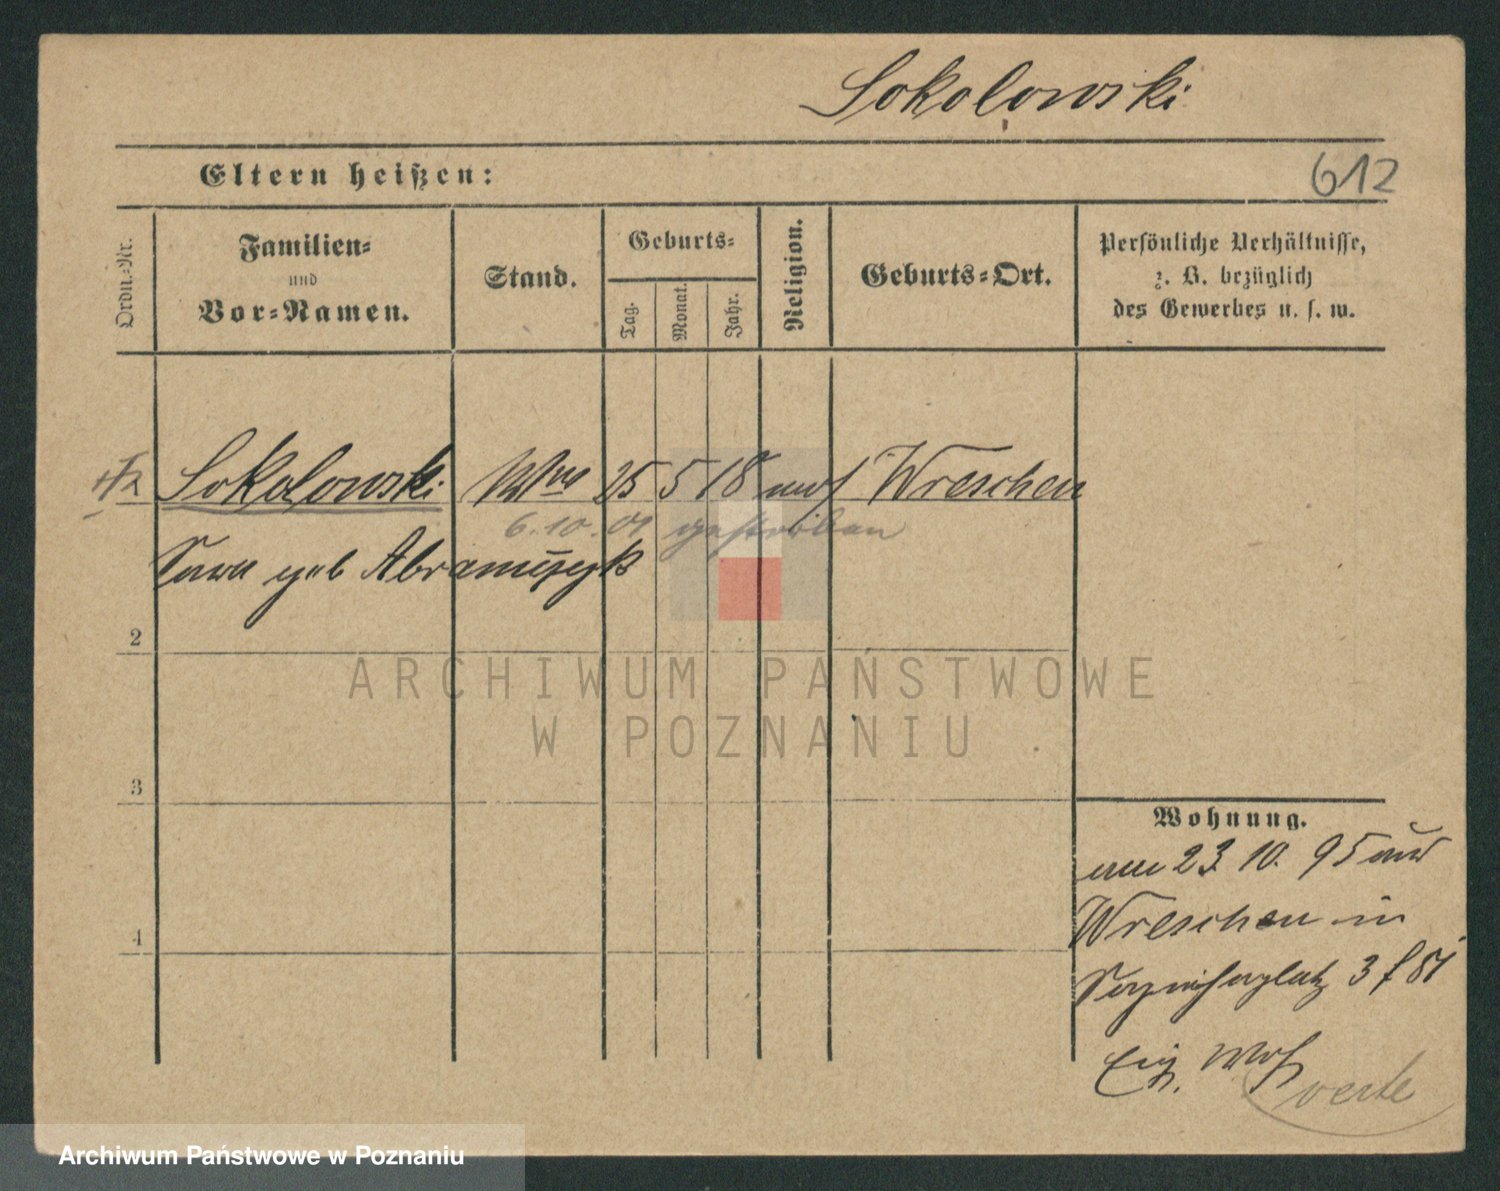 Sokolowski
Eltern heißen:
612
Ordn.-Nr.
Familien-
und
Vor-Namen.
Stand.
Geburts-
Tag.
Monat.
Jahr.
Religion.
Geburts-Ort.
Persönliche Verhältnisse,
z. B. bezüglich
des Gewerbes u. s. w.
Sokolowski Wwe 25 5 18 mos Wreschen
6.10.01 gestorben
Sara geb Abramczyk
2
ARCHIWUM PAŃSTWOWE
W POZNANIU
3
Wohnung.
am 23. 10. 95 aus
4
Wreschen in
Sapiehaplatz 3
Eig.
verte
Archiwum Państwowe w Poznaniu